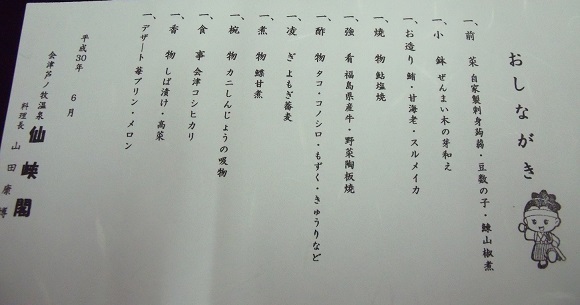 おしながき
一、前菜 自家製刺身蒟蒻・豆数の子・鰊山椒煮
一、小鉢 ぜんまい木の芽和え
一、お造り 鮪・甘海老・スルメイカ
一、焼物 鮎塩焼
一、強肴 福島県産牛・野菜陶板焼
一、酢物 タコ・コノシロ・もずく・きゅうりなど
一、凌ぎ よもぎ蕎麦
一、煮物 鰈甘煮
一、椀物 カニしんじょうの吸物
一、食事 会津コシヒカリ
一、香物 しば漬け・高菜
一、デザート 苺プリン・メロン
平成30年 6月
会津芦ノ牧温泉 仙峡閣
料理長 山田康博